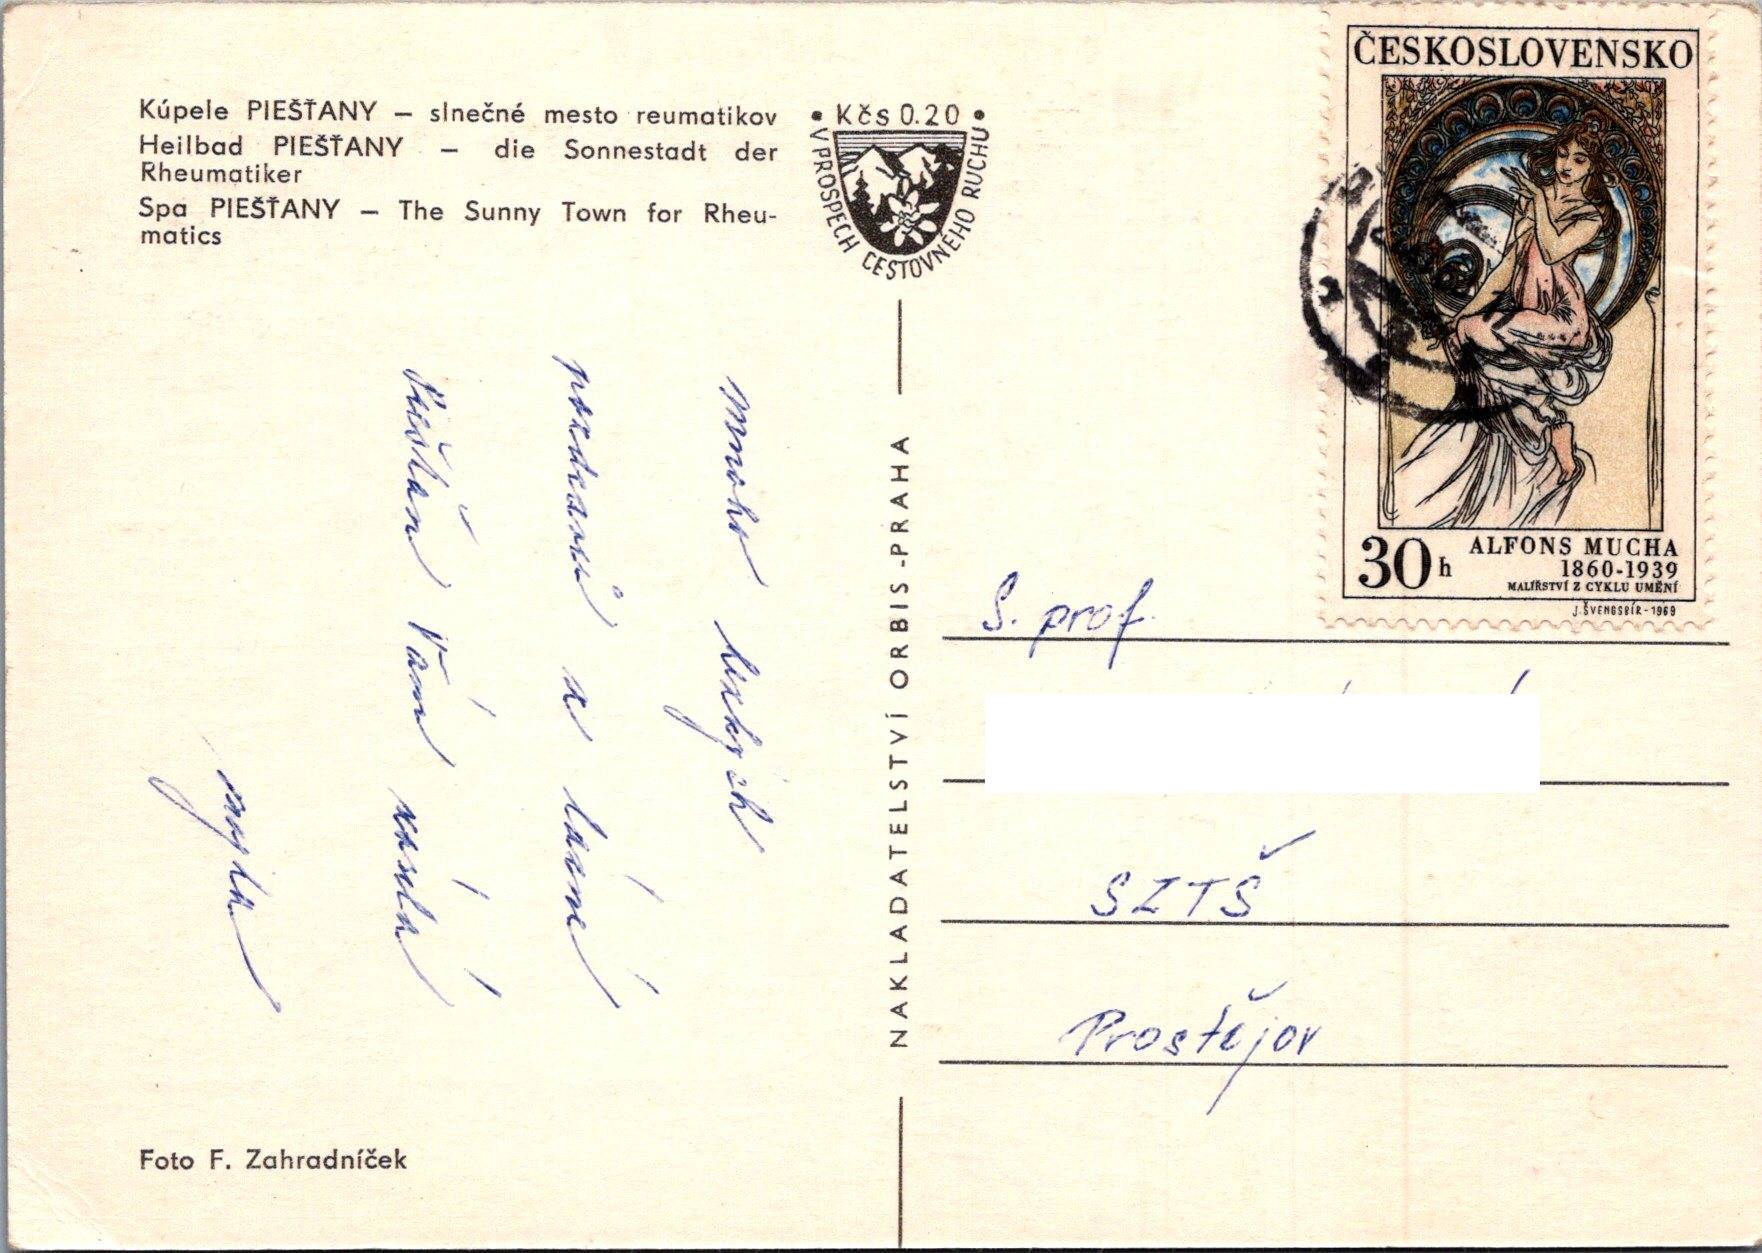 Kúpele PIEŠŤANY – slnečné mesto reumatikov
Heilbad PIEŠŤANY – die Sonnestadt der
Rheumatiker
Spa PIEŠŤANY – The Sunny Town for Rheu-
matics
• Kčs 0.20 •
V PROSPECH CESTOVNÉHO RUCHU
ČESKOSLOVENSKO
30 h
ALFONS MUCHA
1860-1939
MALÍŘSTVÍ Z CYKLU UMĚNÍ
J. ŠVENGSBÍR - 1969
mnoho hezkých
pozdravů z lázní
Piešťan Vám
NAKLADATELSTVÍ ORBIS - PRAHA
S. prof.
SZTŠ
Prostějov
Foto F. Zahradníček